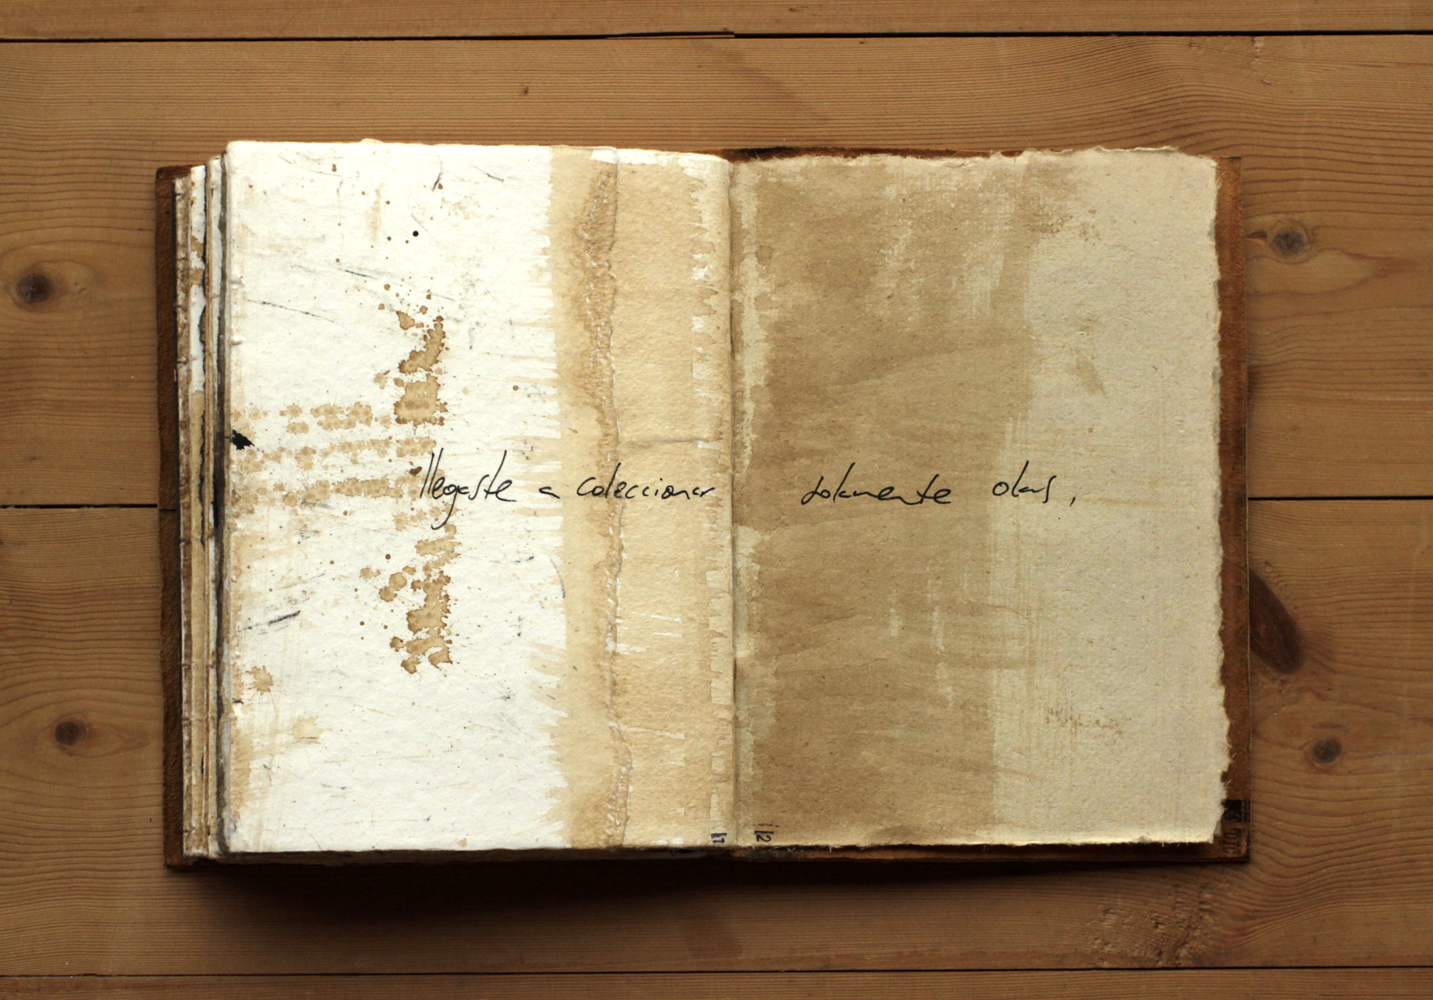 llegaste a coleccionar solamente olas,